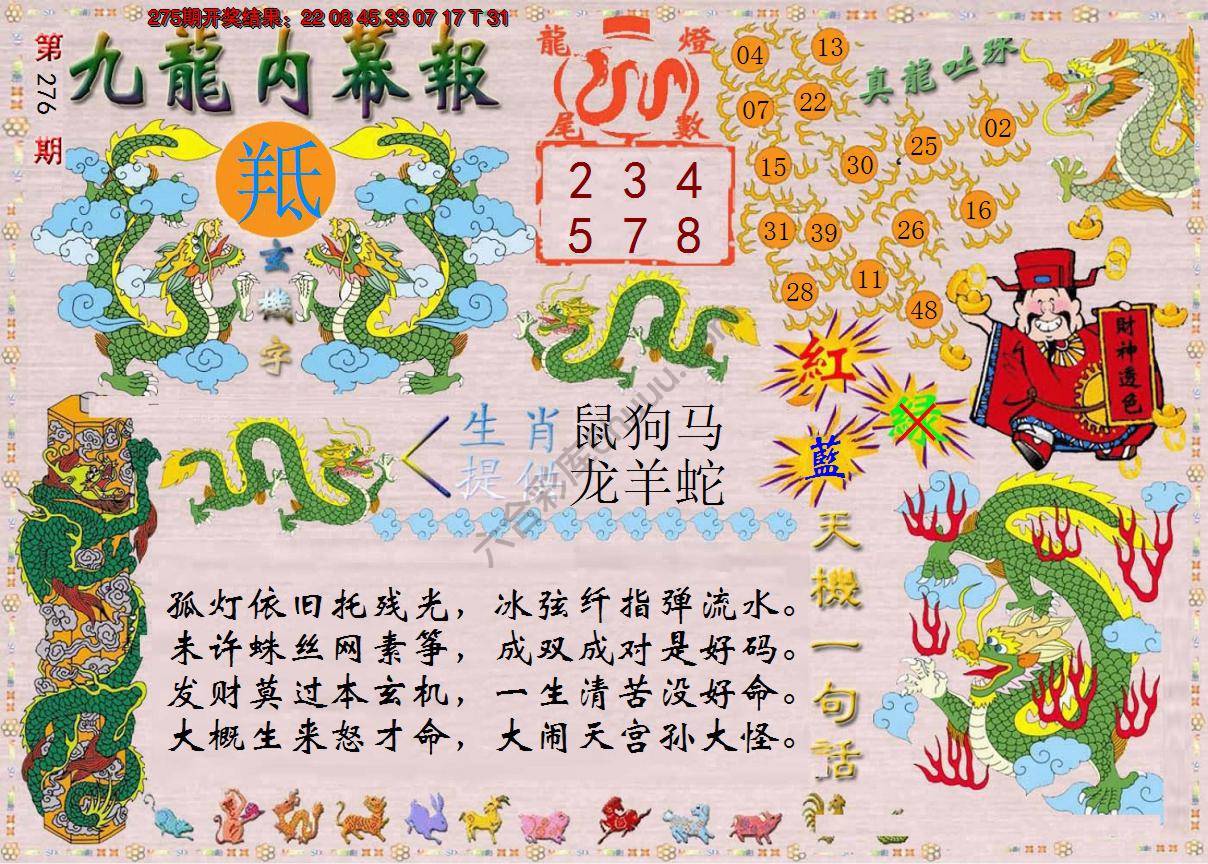 275期开奖结果：22 06 45 33 07 17 T 31
第276期
九龍内幕報
羝
玄機字
龍燈
尾數
2 3 4
5 7 8
真龍吐珠
04 13
07 22
25 02
15 30
16
31 39 26
28 11 48
財神透色
紅
绿
藍
生肖 鼠狗马
提供 龙羊蛇
天機一句话
孤灯依旧托残光，冰弦纤指弹流水。
未许蛛丝网素筝，成双成对是好码。
发财莫过本玄机，一生清苦没好命。
大概生来怒才命，大闹天宫孙大怪。